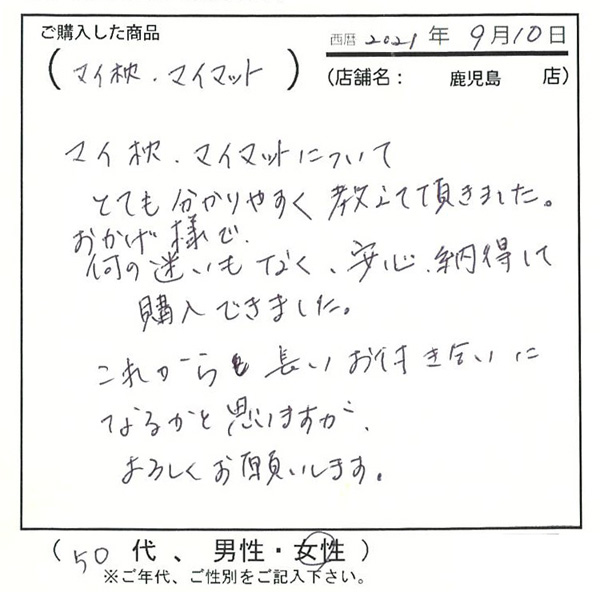 ご購入した商品
(マイ枕・マイマット)
西暦 2021年 9月10日
(店舗名: 鹿児島 店)
マイ枕・マイマットについて
とても分かりやすく教えて頂きました。
おかげ様で、
何の迷いもなく、安心、納得して
購入できました。
これからも長いお付き合いに
なるかと思いますが、
よろしくお願いします。
(50代、男性・女性)
※ご年代、ご性別をご記入下さい。